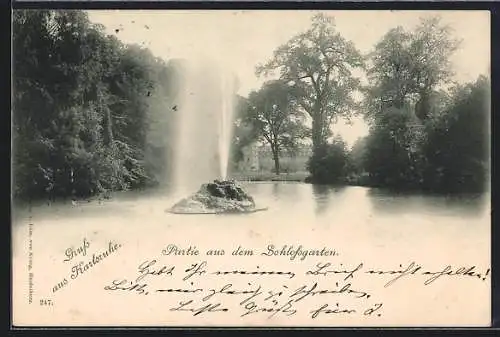 Partie aus dem Schloßgarten.
Gruß
aus Karlsruhe.
Habt Ihr meinen Brief nicht erhalten!
Bitte, mir gleich zu schreiben.
Beste Grüße für
247.